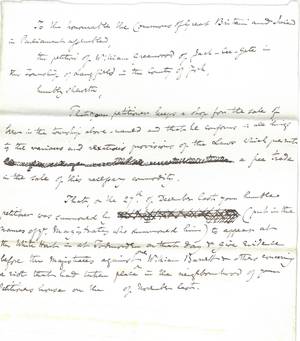 To the honourable the Commons of Great Britain and Ireland
in Parliament assembled,
the petition of William Greenwood of Jack-
in the township of Langfield in the County of York,
humbly sheweth,
That your petitioner keeps a shop for the sale of
beer in the township above-named and that he conforms in all things
to the various and vexatious provisions of the Laws which prevents
a free trade
in the sale of this necessary commodity.
That, on the 27th of December last, your humble
petitioner was summoned by (
names of ye Magistrates who summoned him) to appear at
the White Hart in at Todmorden on that day to give evidence
before the Magistrates against William & others concerning
a riot that had taken place in the neighbourhood of your
petitioners house on the of November last.